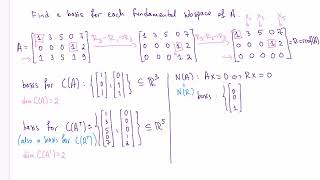 Find a basis for each fundamental subspace of A.
x₂ x₃ x₅
A = [1 3 5 0 7; 0 0 0 1 2; 1 3 5 1 9] R₃-R₁→R₃ [1 3 5 0 7; 0 0 0 1 2; 0 0 0 1 2] R₃-R₂→R₃ [1 3 5 0 7; 0 0 0 1 2; 0 0 0 0 0] = R = rref(A)
basis for C(A) : { [1; 0; 1], [0; 1; 1] } ⊆ ℝ³
dim C(A) = 2
basis for C(Aᵀ) = { [1; 3; 5; 0; 7], [0; 0; 0; 1; 2] } ⊆ ℝ⁵
(also a basis for C(Rᵀ))
dim C(Aᵀ) = 2
N(A) : Ax = 0 ⇔ Rx = 0
N(R)
basis : { [0; 0; 1]